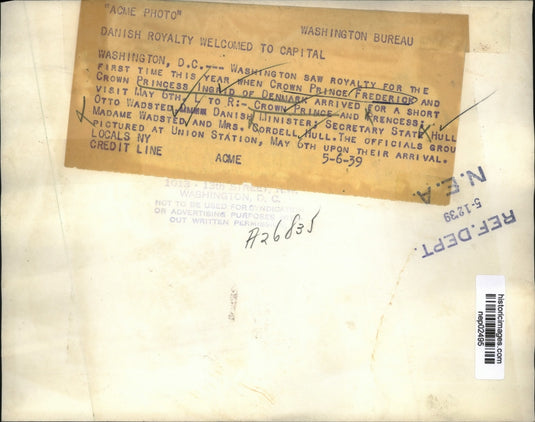 "ACME PHOTO" WASHINGTON BUREAU
DANISH ROYALTY WELCOMED TO CAPITAL
WASHINGTON, D.C.--- WASHINGTON SAW ROYALTY FOR THE
FIRST TIME THIS YEAR WHEN CROWN PRINCE FREDERICK AND
CROWN PRINCESS INGRID OF DENMARK ARRIVED FOR A SHORT
VISIT MAY 6TH. L TO R:- CROWN PRINCE AND PRENCESS;
OTTO WADSTED DANISH MINISTER; SECRETARY STATE HULL
MADAME WADSTED; AND MRS. CORDELL HULL. THE OFFICIALS GROU
PICTURED AT UNION STATION, MAY 6TH UPON THEIR ARRIVAL.
LOCALS NY
CREDIT LINE ACME 5-6-39
1013 - 13TH STREET, N.
WASHINGTON, D. C.
NOT TO BE USED FOR SYNDICATE
OR ADVERTISING PURPOSES
OUT WRITTEN
A26835
REF. DEPT.
5-1239
N.E.A
historicimages.com
nep02495